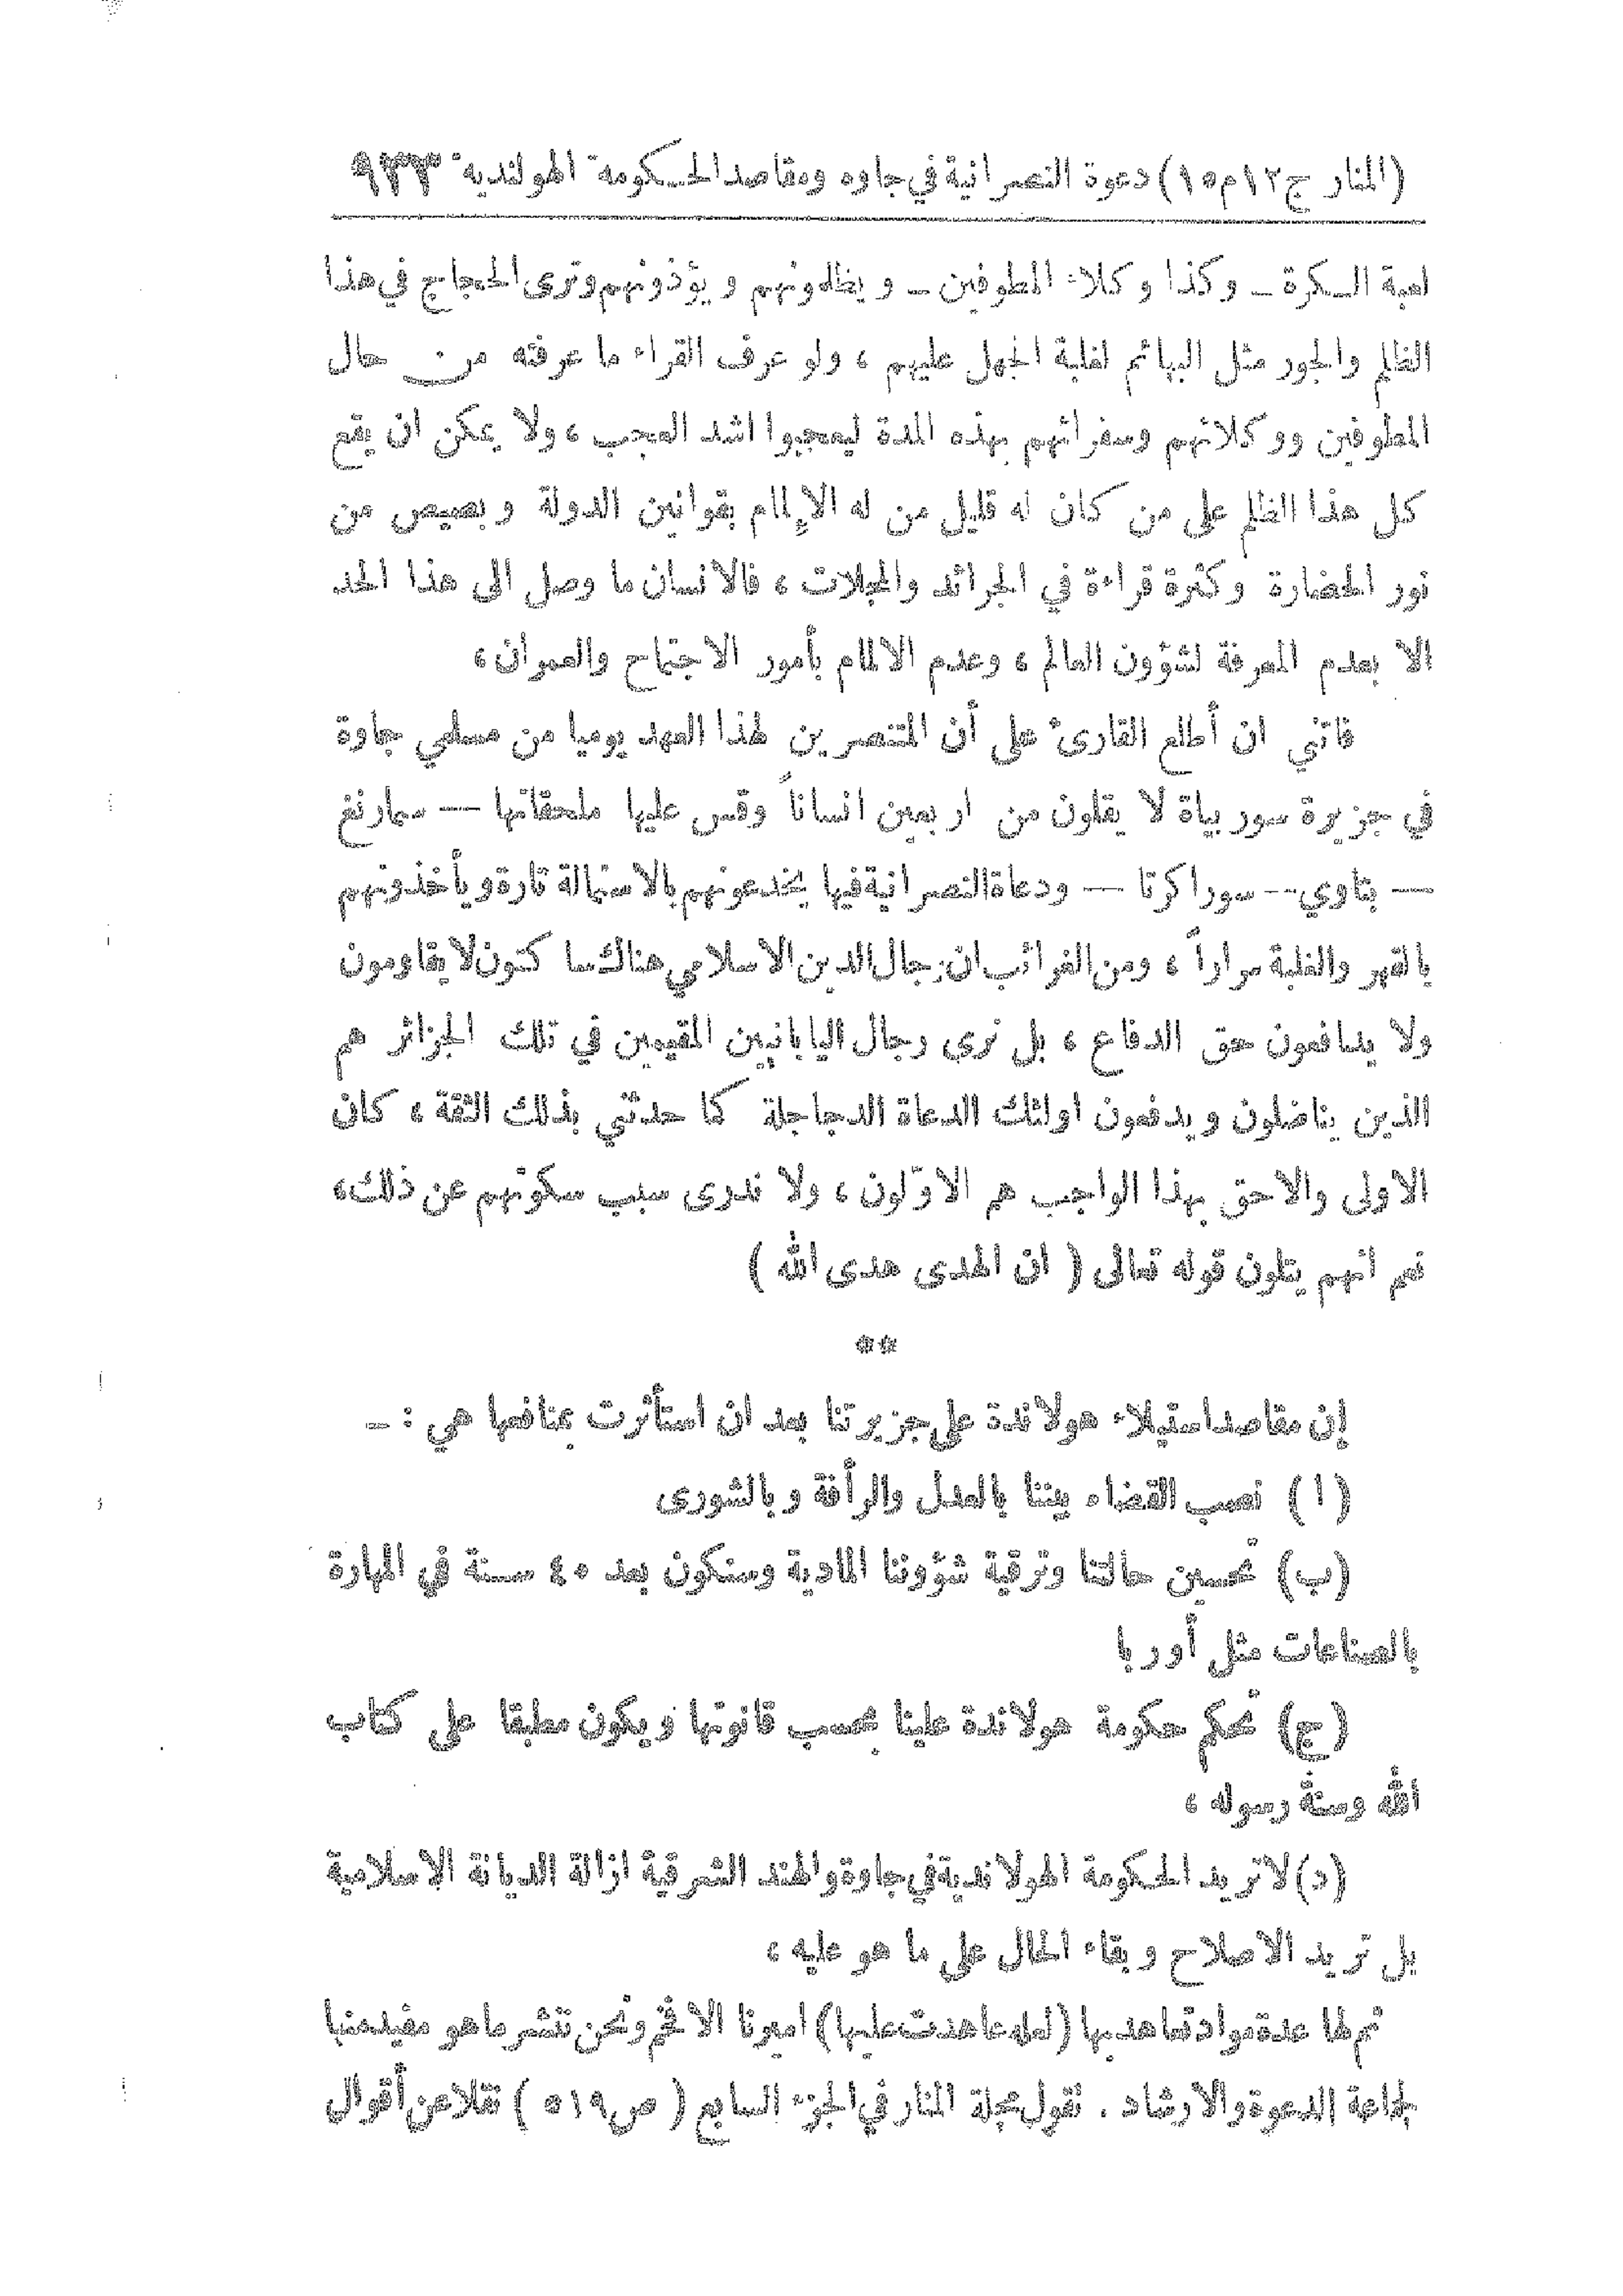 (المنار ج١٢م١٥) دعوة النصرانية في جاوه ومقاصد الحكومة الهولندية ٩٣٣
لعبة السكرة – وكذا وكلاء المطوفين – ويظلمونهم ويؤذونهم وترى الحجاج في هذا
الظلم والجور مثل البهائم لغلبة الجهل عليهم ، ولو عرف القراء ما عرفته من حال
المطوفين ووكلائهم وسفرائهم بهذه المدة ليعجبوا اشد العجب ، ولا يمكن ان يقع
كل هذا الظلم على من كان له قليل من له الإلمام بقوانين الدولة وبصيص من
نور الحضارة وكثرة قراءة في الجرائد والمجلات ، فالانسان ما وصل الى هذا الحد
الا بعدم المعرفة لشؤون العالم ، وعدم الالمام بأمور الاجتماع والعمران ،
فاتني ان أطلع القارئ على أن المتنصرين لهذا العهد يوميا من مسلمي جاوة
في جزيرة سوربياة لا يقلون من اربعين انساناً وقس عليها ملحقاتها — سمارنغ
— بتاوي -- سوراكرتا — ودعاة النصرانية فيها يخدعونهم بالاستمالة تارة ويأخذونهم
بالقهر والغلبة مراراً ، ومن الغرائب ان رجال الدين الاسلامي هناك ساكتون لا يقاومون
ولا يدافعون حق الدفاع ، بل نرى رجال اليابانيين المقيمين في تلك الجزائر هم
الذين يناضلون ويدفعون اولئك الدعاة الدجاجلة كما حدثني بذلك الثقة ، كان
الاولى والاحق بهذا الواجب هم الاوّلون ، ولا ندرى سبب سكوتهم عن ذلك ،
نعم انهم يتلون قوله تعالى ( ان الهدى هدى الله )
**
إن مقاصد استيلاء هولاندة على جزيرتنا بعد ان استأثرت بمنافعها هي : –
(ا) نصب القضاء بيننا بالعدل والرأفة وبالشورى
(ب) تحسين حالتنا وترقية شؤوننا المادية وسنكون بعد ٤٠ سنة في المهارة
بالصناعات مثل أوربا
(ج) تحكم حكومة هولاندة علينا بحسب قانونها ويكون مطبقا على كتاب
الله وسنة رسوله ،
(د) لا تريد الحكومة الهولاندية في جاوة والهند الشرقية ازالة الديانة الاسلامية
بل تريد الاصلاح وبقاء الحال على ما هو عليه ،
ثم لها عدة مواد تعاهد بها (لعله عاهدت عليها) اميرنا الافخم ونحن ننشر ما هو مفيد منها
لجماعة الدعوة والارشاد . تقول مجلة المنار في الجزء السابع ( ص ٥١٩ ) نقلا عن أقوال